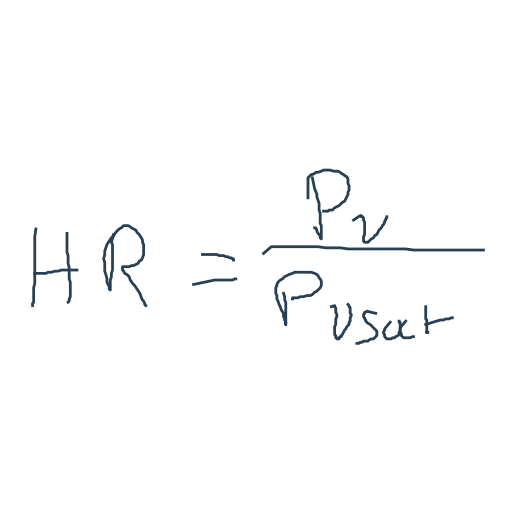 HR = P_v / P_vsat